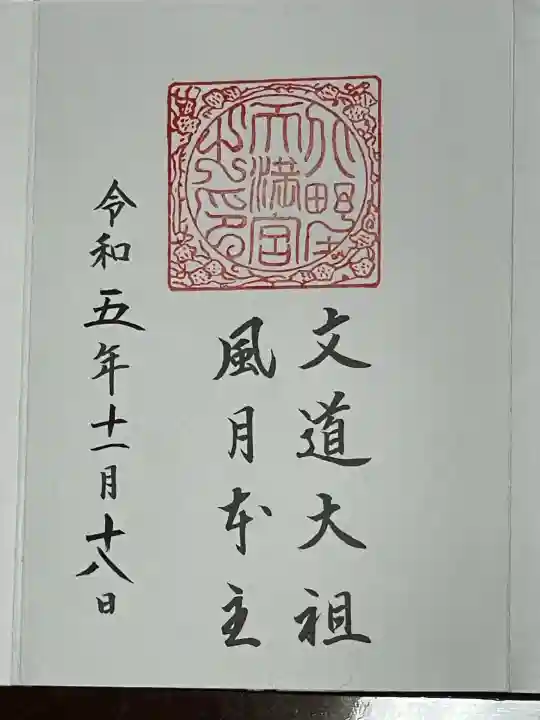 天満宮
文道大祖
風月本主
令和五年十一月十八日